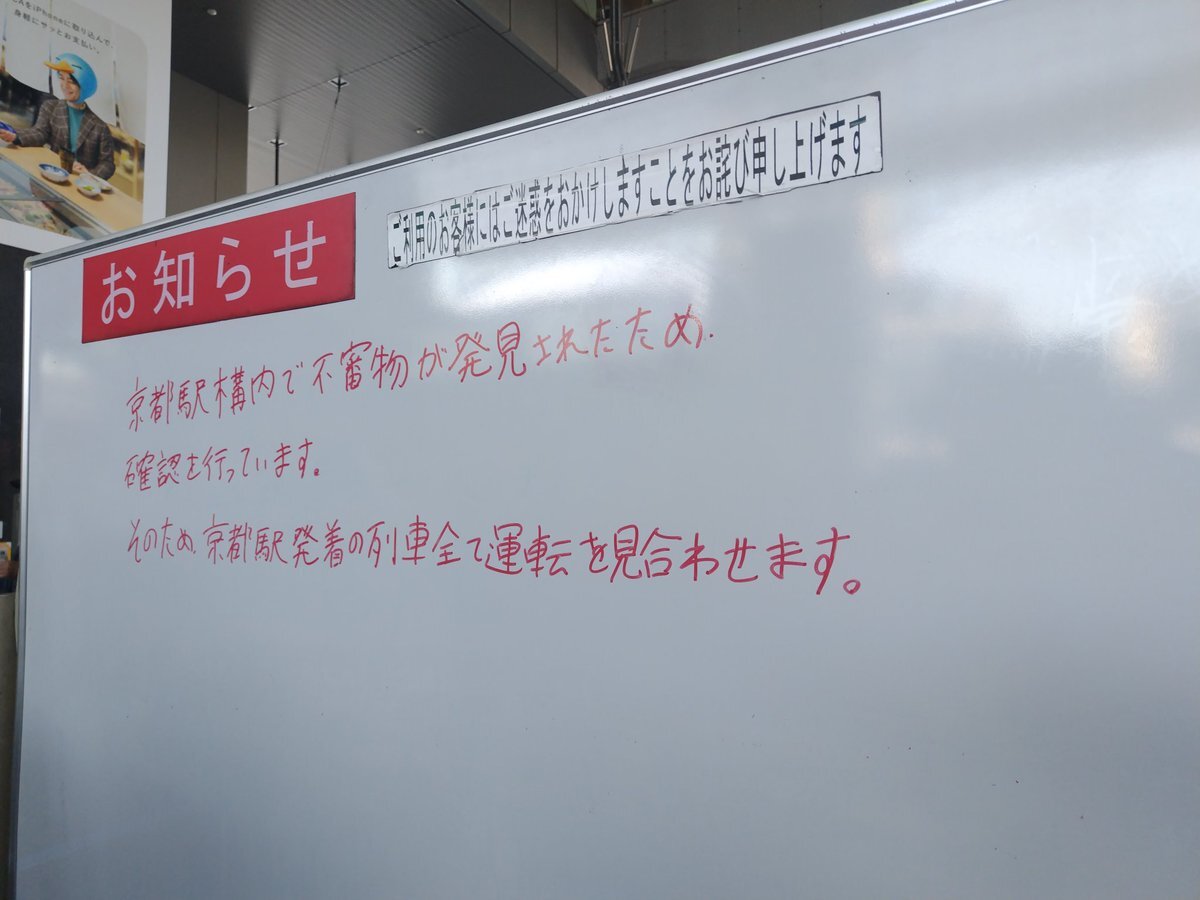 をiPhoneに取り込んで、
身軽にサッとお支払い。
ご利用のお客様にはご迷惑をおかけしますことをお詫び申し上げます
お知らせ
京都駅構内で不審物が発見されたため、
確認を行っています。
そのため、京都駅発着の列車全て運転を見合わせます。